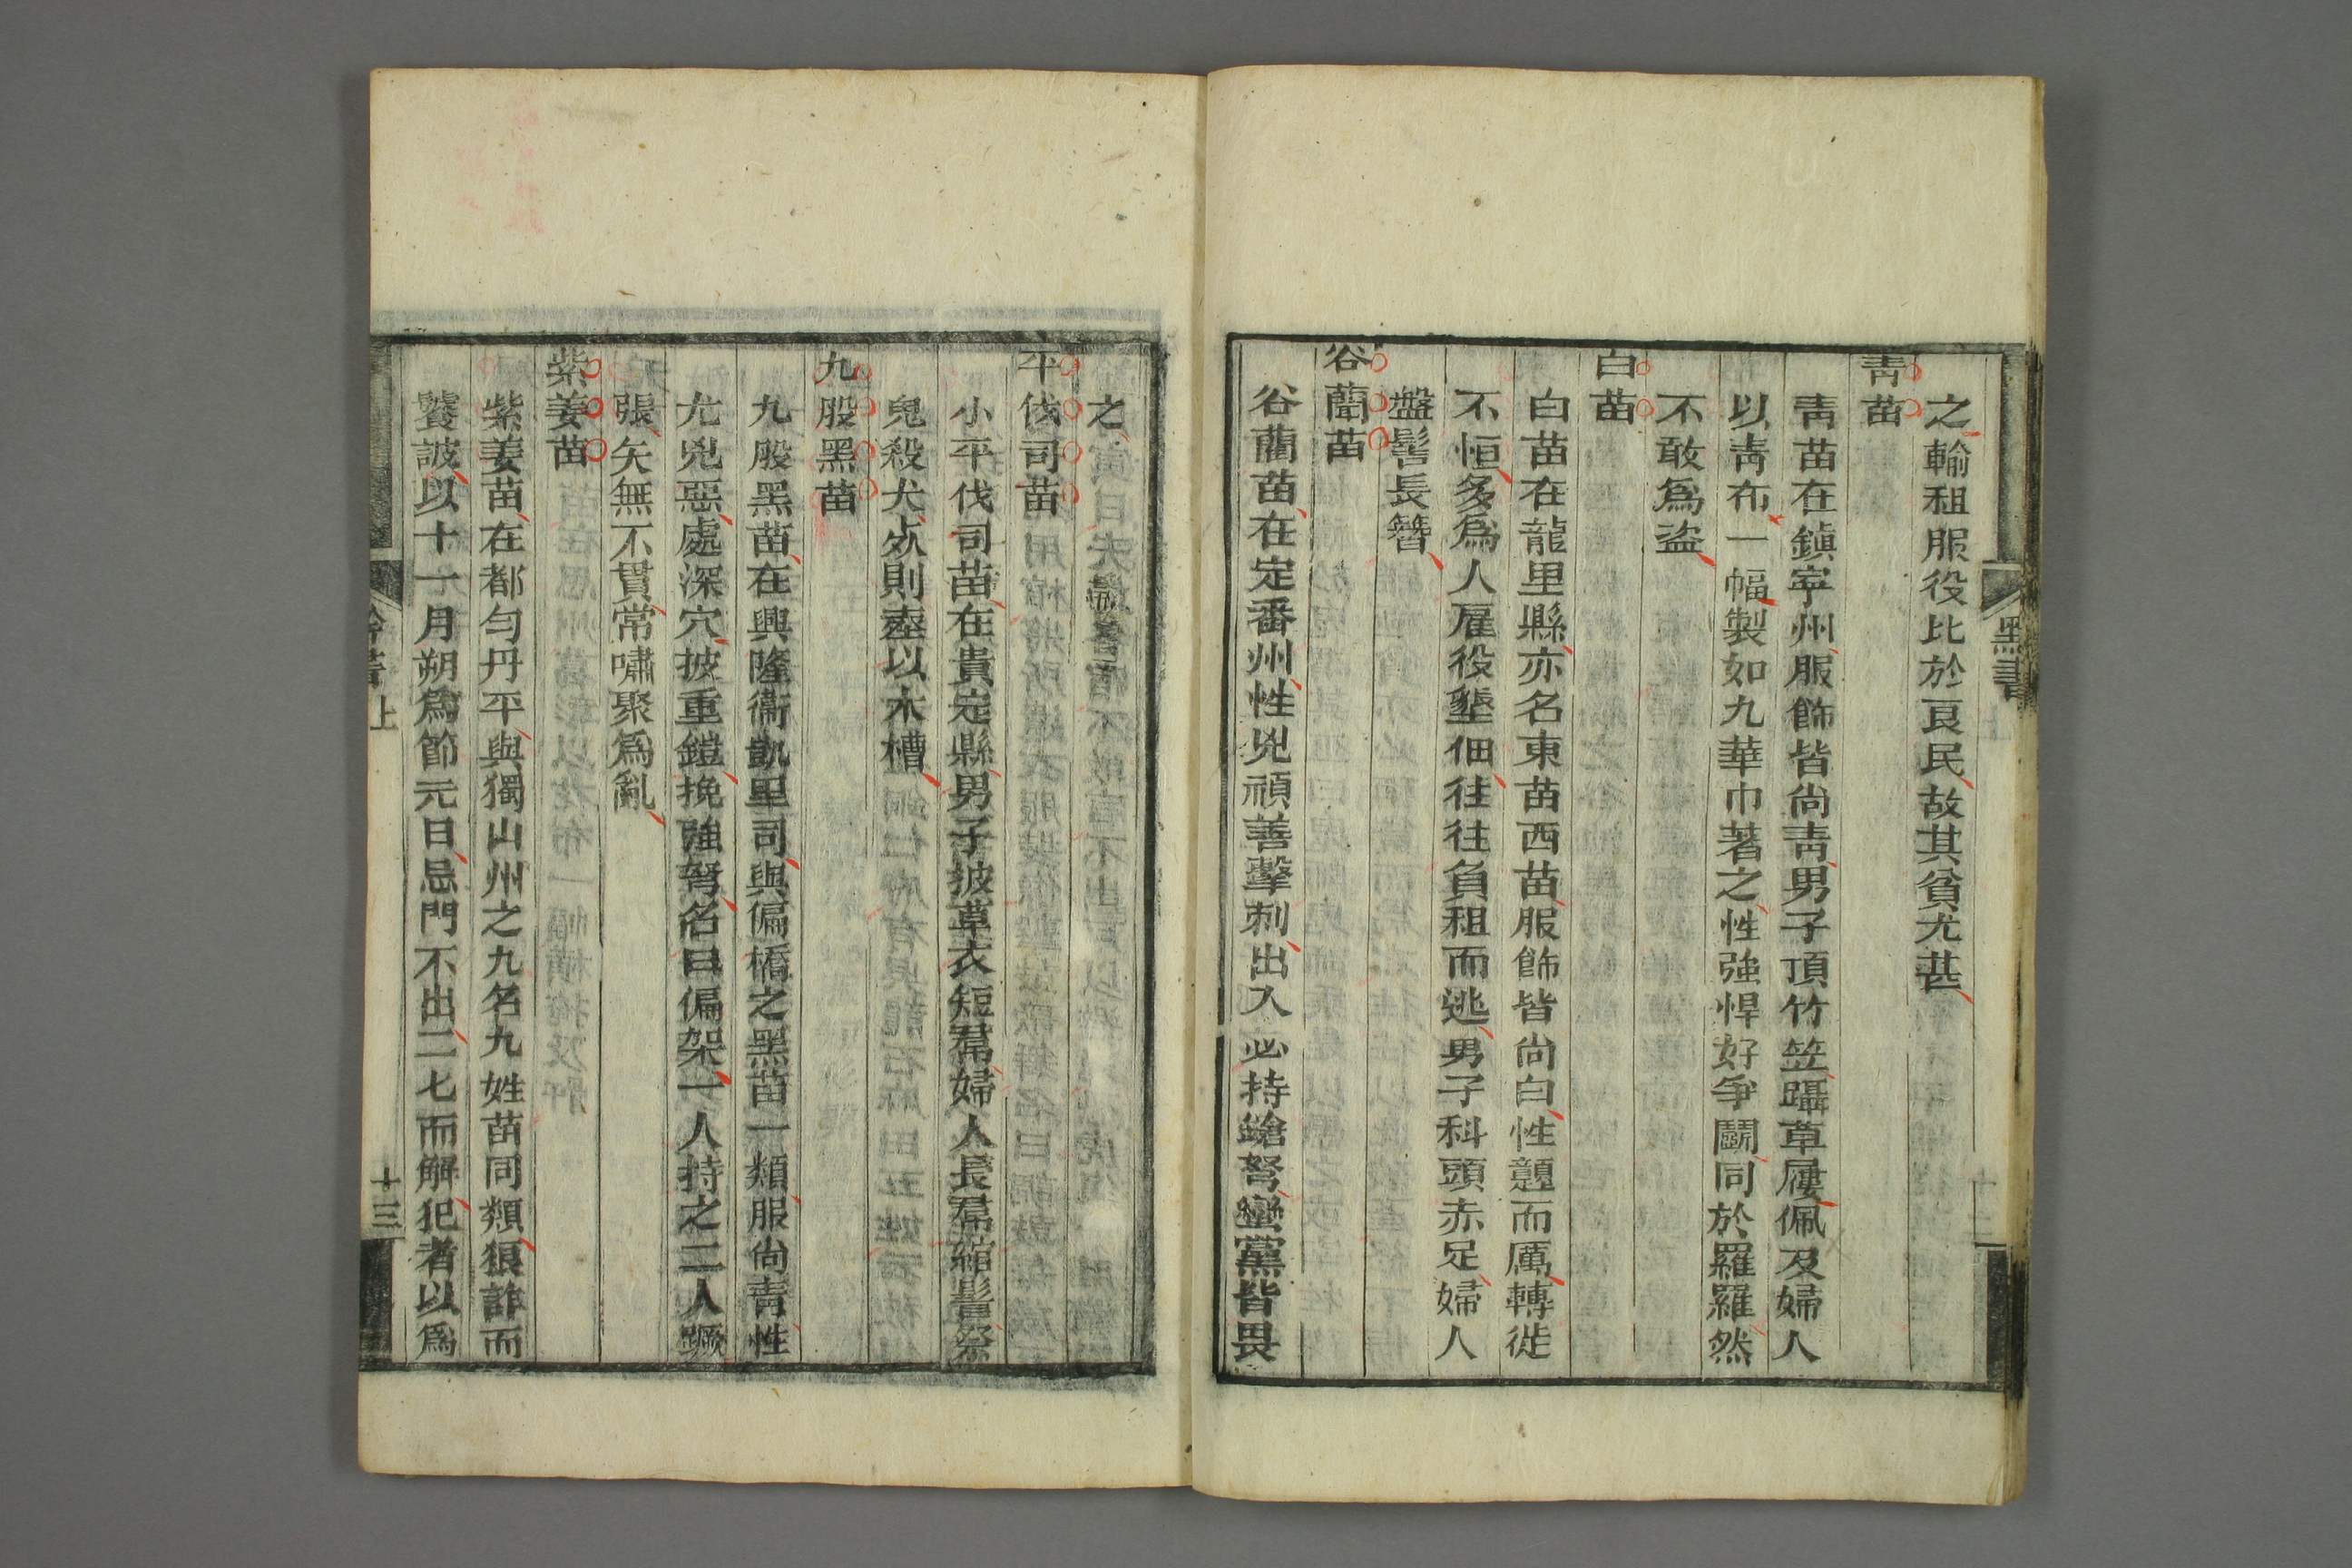 黔書
之輸租服役比於良民故其貧尤甚
青苗
青苗在鎭寧州服飾皆尚青男子頂竹笠躡草屨佩及婦人
以青布一幅製如九華巾著之性強悍好爭鬭同於羅羅然
不敢爲盜
白苗
白苗在龍里縣亦名東苗西苗服飾皆尚白性戇而厲轉徙
不恒多爲人雇役墾佃往往負租而逃男子科頭赤足婦人
盤髻長簪
谷藺苗
谷藺苗在定番州性兇頑善擊刺出入必持鎗弩蠻黨皆畏
之
平伐司苗
小平伐司苗在貴定縣男子披草衣短帬婦人長帬綰髻祭
鬼殺犬死則瘞以木槽
九股黑苗
九股黑苗在興隆衞凱里司與偏橋之黑苗一類服尚青性
尤兇惡處深穴披重鎧挽強弩名曰偏架一人持之二人蹶
張矢無不貫常嘯聚爲亂
紫姜苗
紫姜苗在都勻丹平與獨山州之九名九姓苗同類狠詐而
饕詖以十一月朔爲節元日忌門不出二七而解犯者以爲
黔書上
十三